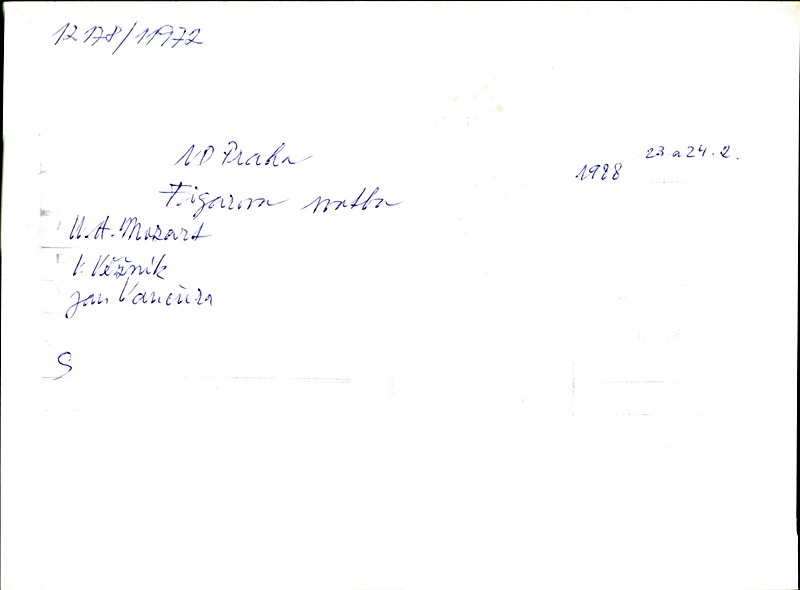 12178/11972
ND Praha
1988 23. a 24. 2.
Figarova svatba
W. A. Mozart
V. Věžník
Jan Vančura
S